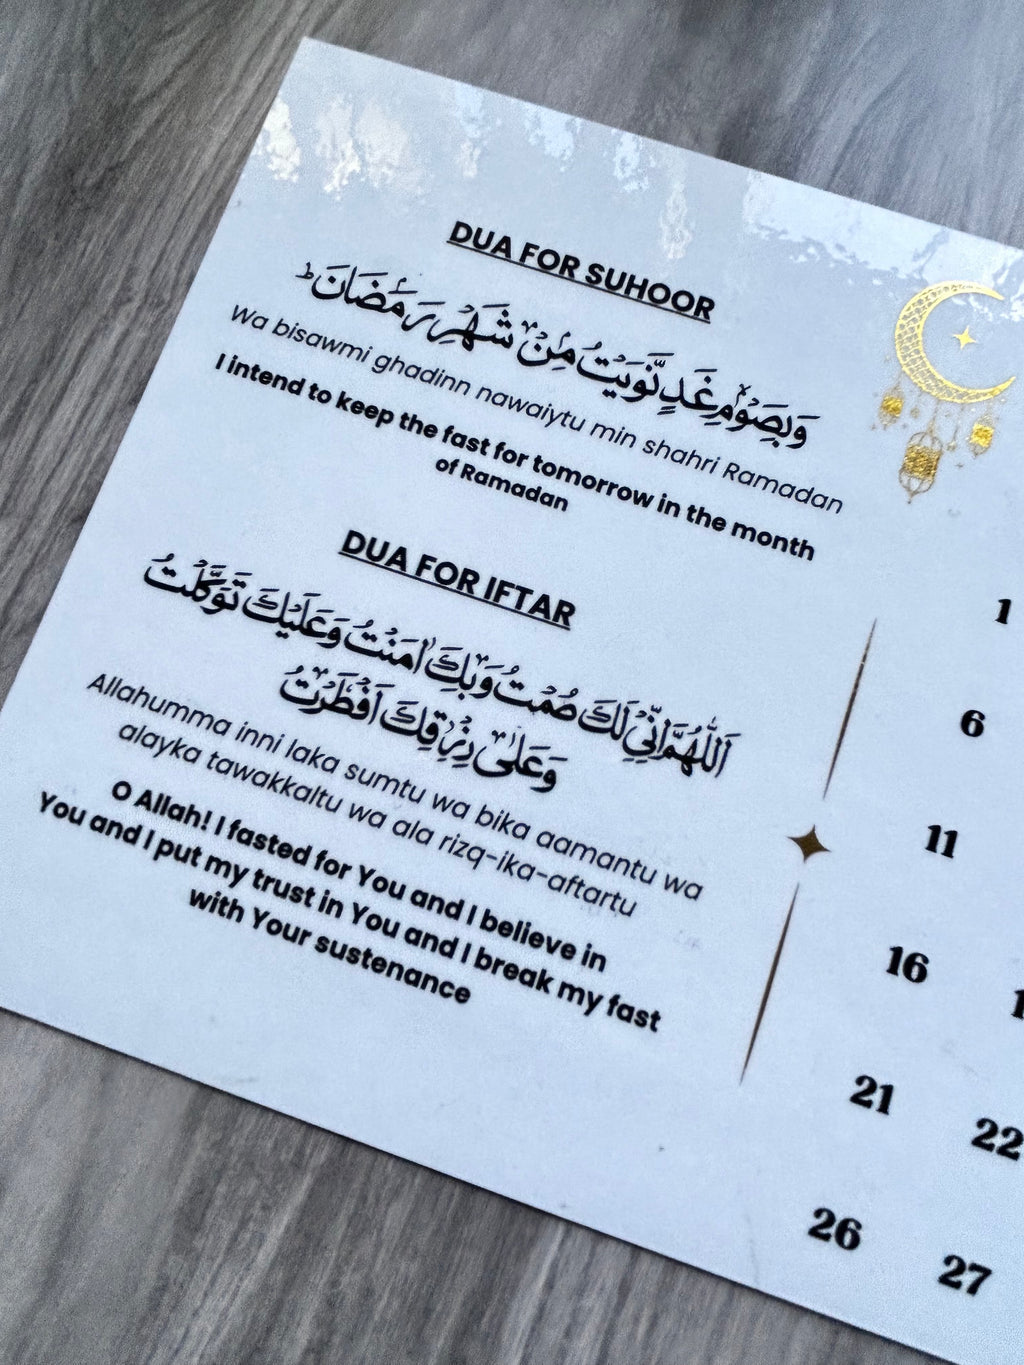 DUA FOR SUHOOR
وَبِصَوْمِ غَدٍ نَّوَيْتُ مِنْ شَهْرِ رَمَضَانَ ؕ
Wa bisawmi ghadinn nawaiytu min shahri Ramadan
I intend to keep the fast for tomorrow in the month
of Ramadan
DUA FOR IFTAR
اَللّٰهُمَّ اِنِّیْ لَكَ صُمْتُ وَبِكَ اٰمَنْتُ وَعَلَيْكَ تَوَكَّلْتُ
وَعَلٰی رِزْقِكَ اَفْطَرْتُ
Allahumma inni laka sumtu wa bika aamantu wa
alayka tawakkaltu wa ala rizq-ika-aftartu
O Allah! I fasted for You and I believe in
You and I put my trust in You and I break my fast
with Your sustenance
1
6
11
16
21 22
26 27